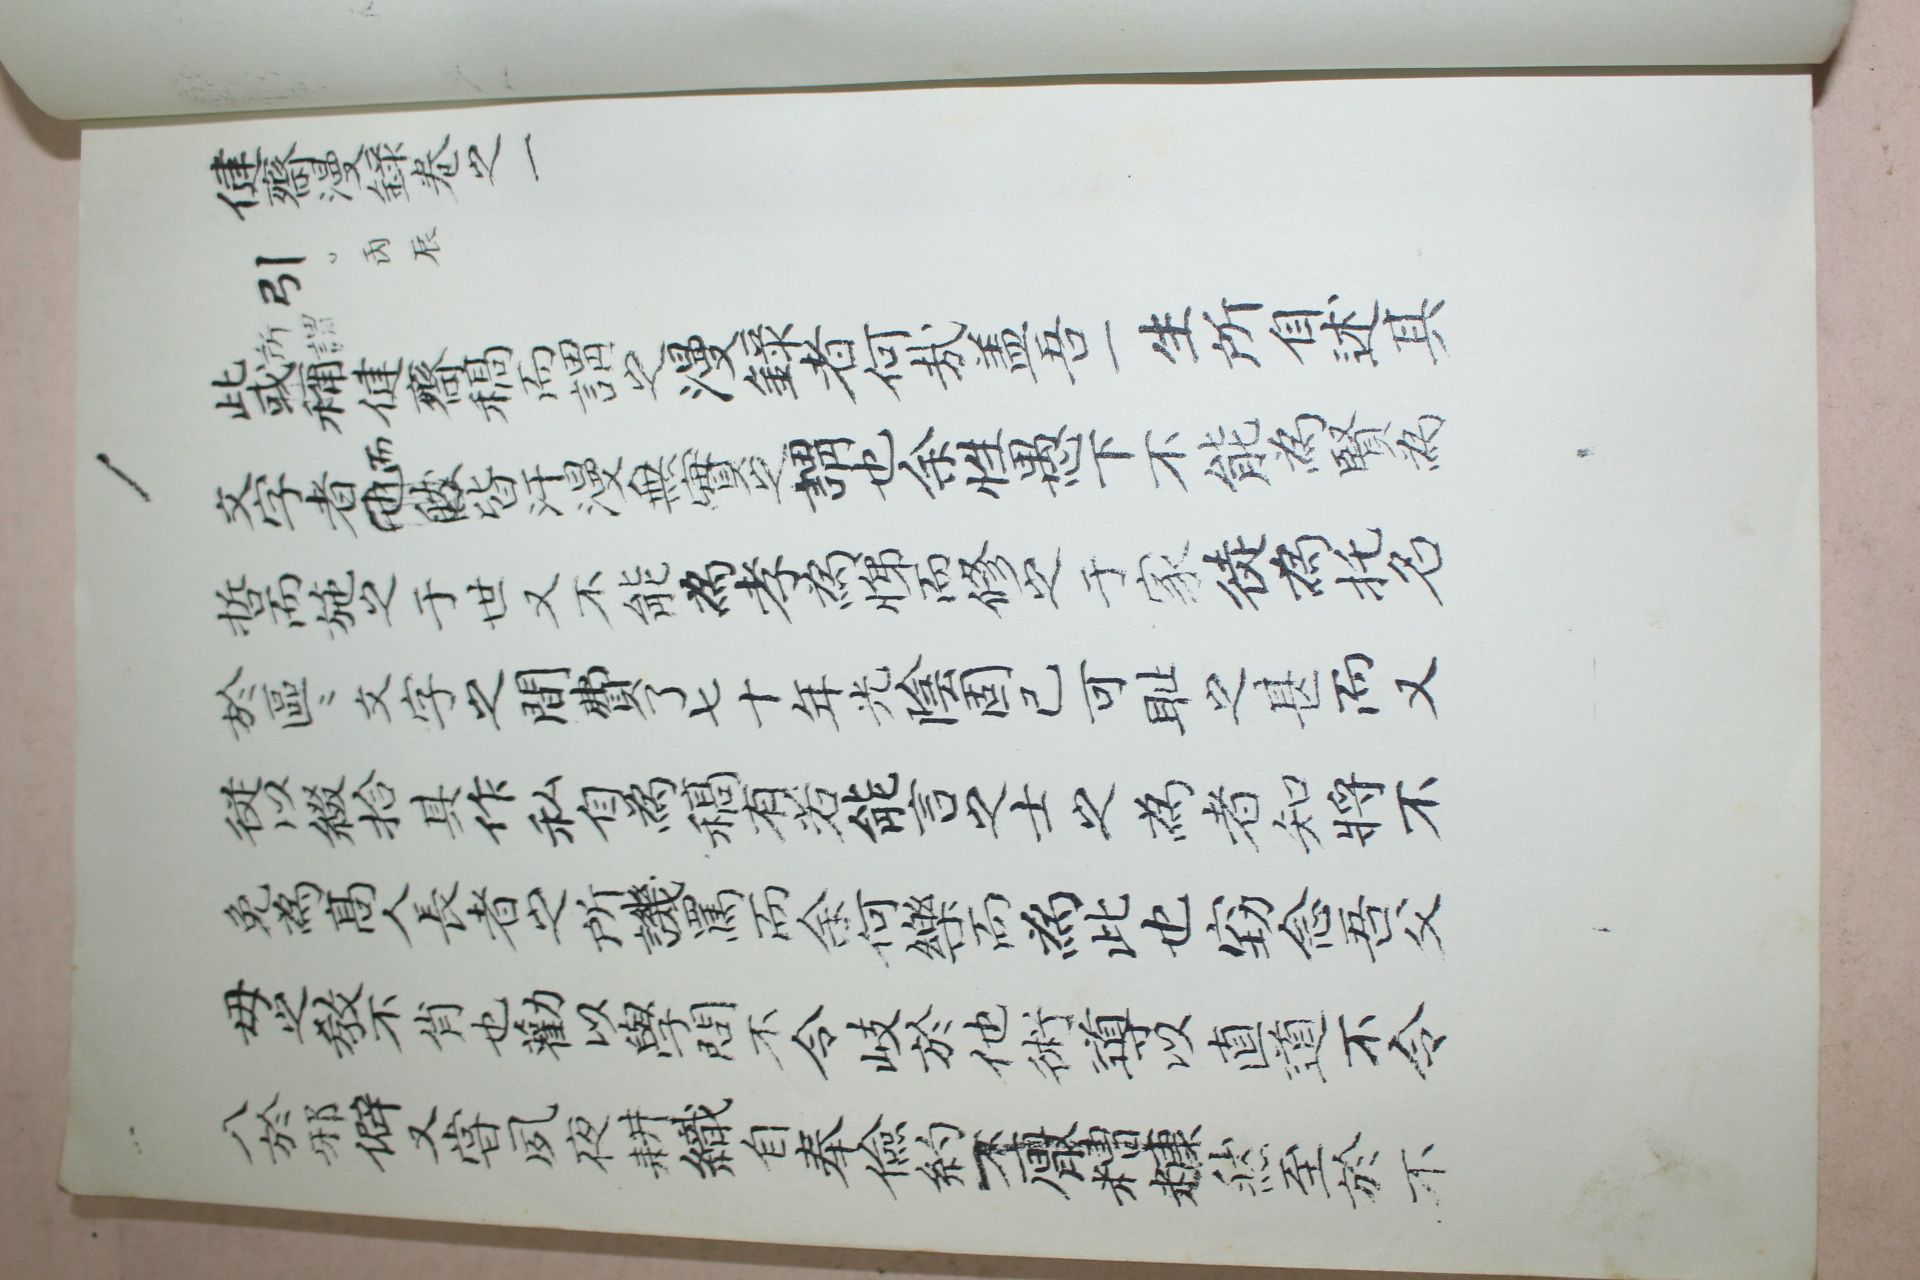 健齋漫錄卷之一
引 丙辰
此或所謂稱健齋稿而謂之漫錄者何哉盖吾一生所自述其
文字者而皆汗漫無實之謂也余性愚下不能爲賢爲
哲而施之于世又不能爲孝爲悌而修之于家徒爲托名
於區〻文字之間費了七十年光陰固已可耻之甚而又
從以綴拾其作私自爲稿有若能言之士之爲者知將不
免爲高人長者之所譏罵而余何樂而爲此也窃念吾父
毋之敎不肖也勸以學問不令歧於他術導以直道不令
入於邪僻又嘗夙夜耕織自奉儉約不糟糠然至於不